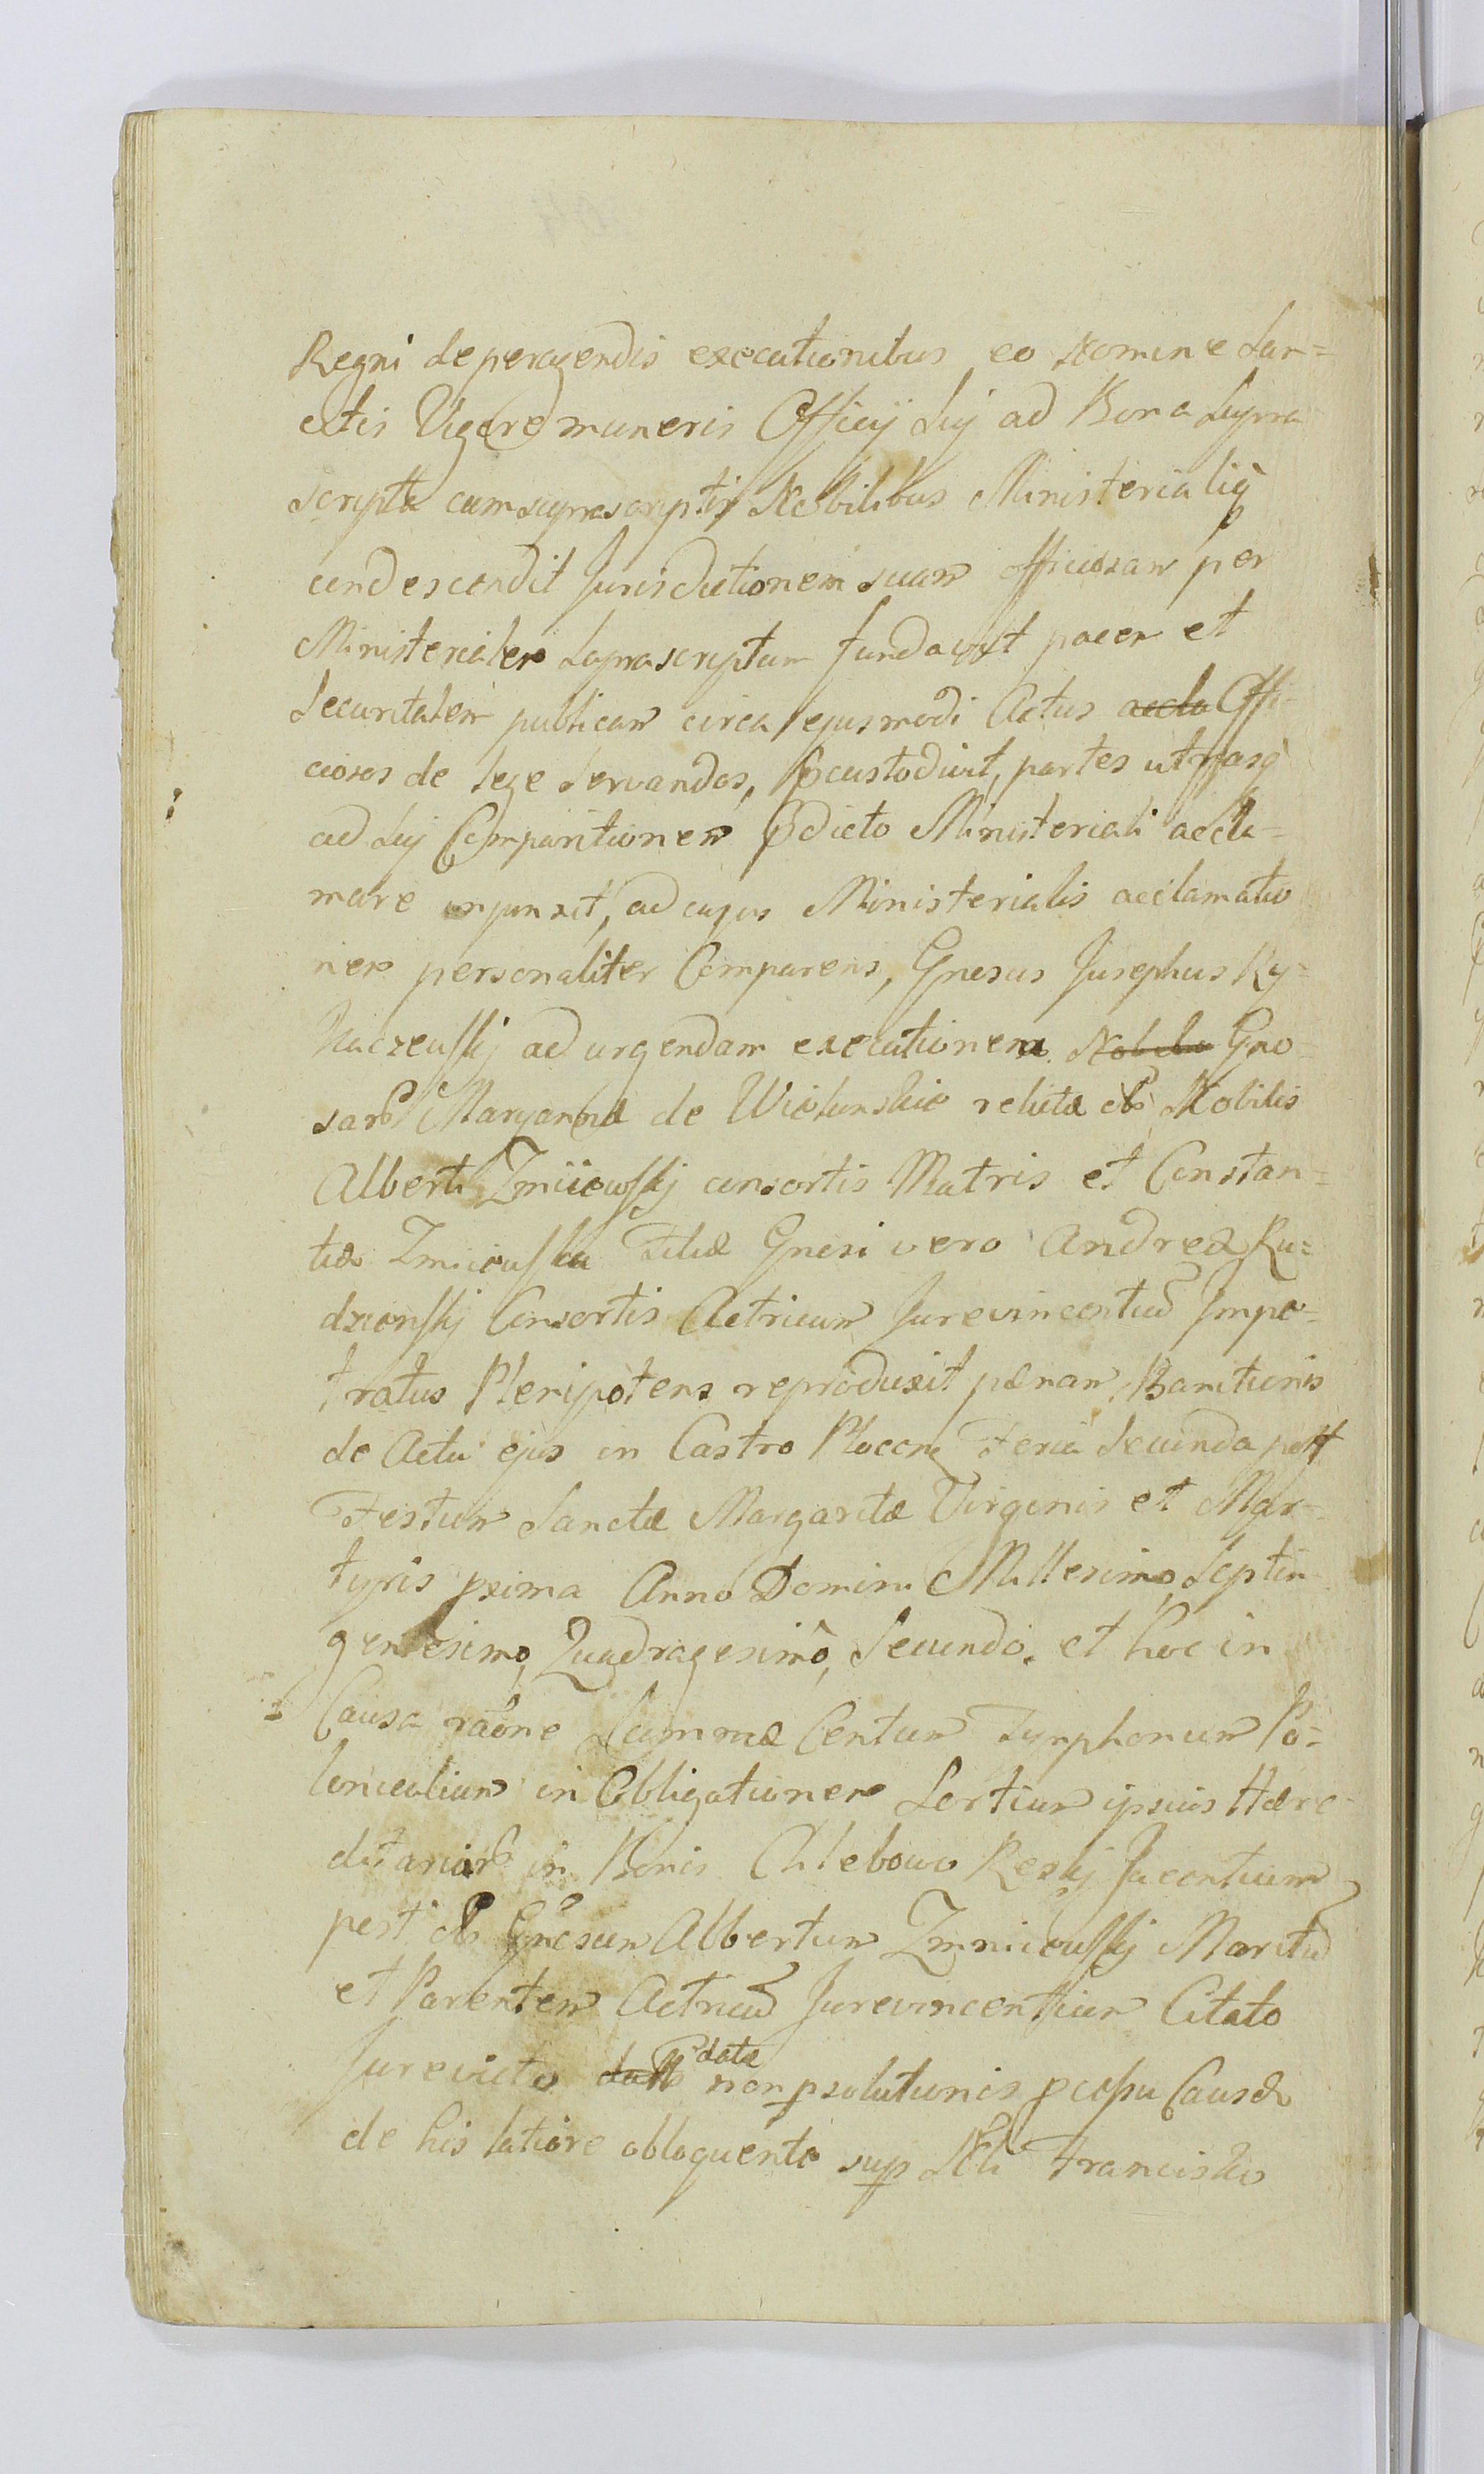 Regni de peragendis executionibus eo Nomine San=
citis Vigore muneris Officij Sui ad Bona Supra
scripta cum suprascriptis Nobilibus Ministerialiq
condescendit Jurisdictionem suam officiosam per
Ministerialem Suprascriptum fundavit pacem et
Securitatem publicam circa ejusmodi Actus accla Offi-
ciosos de lege Servandos, pcustodivit, partes utrasq
ad Sui Comparitionem pdicto Ministeriali accla=
mare injunxit, ad cujus Ministerialis acclamatio
nem personaliter Comparens, Gnesus Josephus Ry=
Kaczewskij ad urgendam executionem Gno
sarum Maryannæ de relictæ olim Nobilis
Alberti Zmiiewskij consortis Matris et Constan=
tiæ Zmiiewska Filiæ Gnesi vero Andreæ Ru=
dzienskij Consortis Actricum Jurevincentium Impe=
tratus Plenipotens reproduxit pænam Banitionis
de Actu ejus in Castro Plocen Feria Secunda post
Festum Sanctæ Margaritæ Virginis et Mar=
tyris prima Anno Domini Millesimo Septin
gentesimo, Quadragesimo, Secundo. et hoc in
Causa raone Summæ Centum Tymphonum Po=
lonicalium in Obligationem Sortium ipsius Hære=
ditariarum in Bonis Chlebowo Jacentium
per olim Gnesum Albertum Zmniewskij Maritum
et Parentem Actricum Jurevincentium Citato
Jurevicto datæ non psolutionis Causæ
de his latiore obloquente sup Francisko